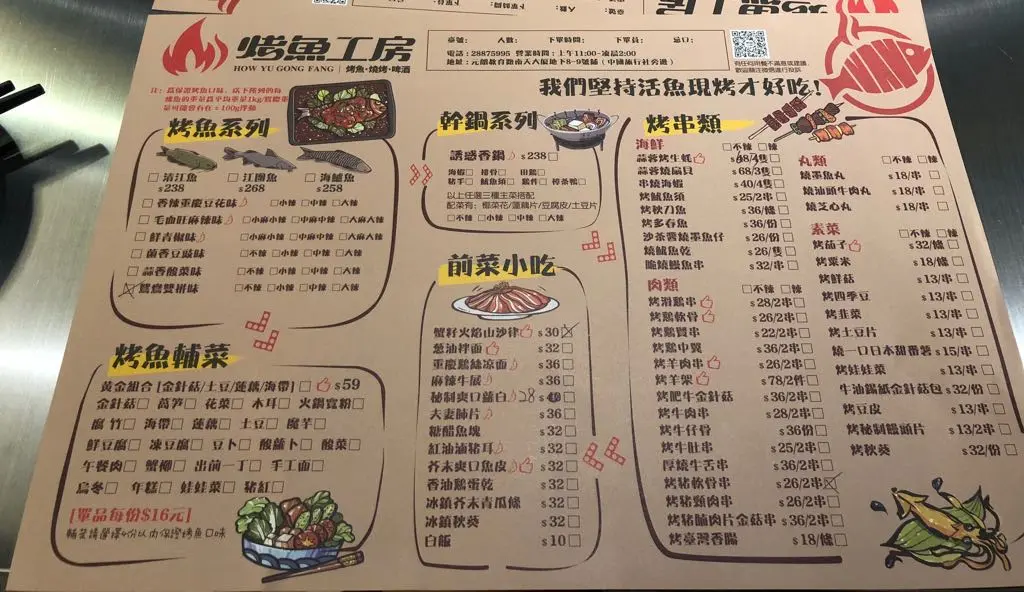 烤魚工房
HOW YU GONG FANG | 烤魚·燒烤·啤酒
臺號： 人數： 下單時間： 下單員： 忌口：
電話：28875995 營業時間：上午11:00-凌晨2:00
地址：元朗教育路南天大廈地下8-9號鋪（中國旅行社旁邊）
我們堅持活魚現烤才好吃!
烤魚系列
清江魚 $238
江團魚 $268
海鱸魚 $258
香辣重慶豆花味 小辣 中辣 大辣
毛血旺麻辣味 小麻小辣 中麻中辣 大麻大辣
鮮青椒味 小麻小辣 中麻中辣 大麻大辣
菌香豆豉味 不辣 小辣 中辣 大辣
蒜香酸菜味 不辣 小辣 中辣 大辣
鴛鴦雙拼味 不辣 小辣 中辣 大辣
烤魚輔菜
黃金組合[金針菇/土豆/蓮藕/海帶] $59
金針菇 萵筍 花菜 木耳 火鍋寬粉
腐竹 海帶 蓮藕 土豆 魔芋
鮮豆腐 凍豆腐 豆卜 酸蘿卜 酸菜
午餐肉 蟹柳 出前一丁 手工面
烏冬 年糕 娃娃菜 豬紅
[單品每份$16元]
輔菜請選擇4份以內保證烤魚口味
幹鍋系列
誘惑香鍋 $238
海蝦 排骨 田鷄
豬手 魷魚須 鷄件 檸茶鴨
以上任選三種主菜搭配
配菜有：椰菜花/蓮藕片/豆腐皮/土豆片
不辣 小辣 中辣 大辣
前菜小吃
蟹籽火焰山沙律 $30
蔥油拌面 $32
重慶鷄絲凉面 $36
麻辣牛展 $36
秘制爽口蘿白 28 $40
夫妻肺片 $36
糖醋魚塊 $32
紅油滷豬耳 $32
芥末爽口魚皮 $32
香油鷄蛋乾 $32
冰鎮芥末青瓜條 $32
冰鎮秋葵 $32
白飯 $10
烤串類
海鮮 不辣 辣
蒜蓉烤生蚝 $48/3隻
蒜蓉燒扇貝 $68/3隻
串燒海蝦 $40/4隻
烤魷魚須 $25/2串
烤秋刀魚 $36/條
烤多春魚 $36/份
沙茶醬燒墨魚仔 $26/份
燒魷魚乾 $26/隻
脆燒鰻魚串 $32/串
肉類 不辣 辣
烤滑鷄串 $28/2串
烤鷄軟骨 $26/2串
烤鷄腎串 $22/2串
烤鷄中翼 $36/2串
烤羊肉串 $26/2串
烤羊架 $78/2件
烤肥牛金針菇 $36/2串
烤牛肉串 $28/2串
烤牛仔骨 $36/份
烤牛肚串 $25/2串
厚燒牛舌串 $36/2串
烤豬軟骨串 $26/2串
烤豬頸肉串 $26/2串
烤豬腩肉片金菇串 $36/2串
烤臺灣香腸 $18/條
丸類 不辣 辣
燒墨魚丸 $18/串
燒汕頭牛肉丸 $18/串
燒芝心丸 $18/串
素菜 不辣 辣
烤茄子 $32/條
烤粟米 $18/條
烤鮮菇 $13/串
烤四季豆 $13/串
烤韭菜 $13/串
烤土豆片 $13/串
燒一口日本甜番薯 $15/串
烤娃娃菜 $13/串
牛油錫紙金針菇包 $32/份
烤豆皮 $13/串
烤秘制饅頭片 $13/2串
烤秋葵 $32/份